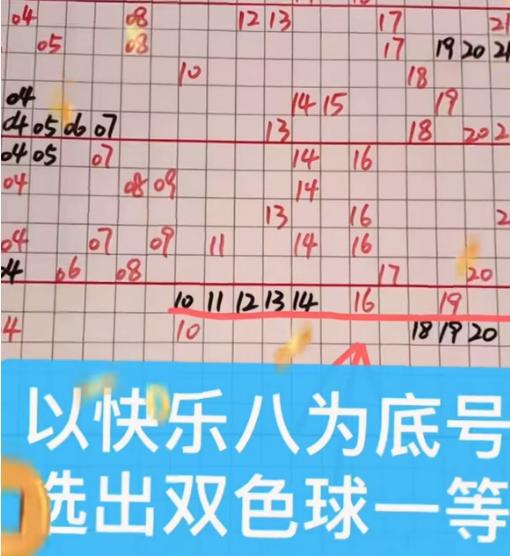 04 08 12 13 17 21
05 08 17 19 20 21
10 18
04 14 15 19
04 05 06 07 13 18 20 2
04 05 07 14 16
04 08 09 14
13 16 2
04 07 09 11 14 16
4 06 08 17 20
10 11 12 13 14 16 19
4 10 18 19 20
以快乐八为底号
选出双色球一等